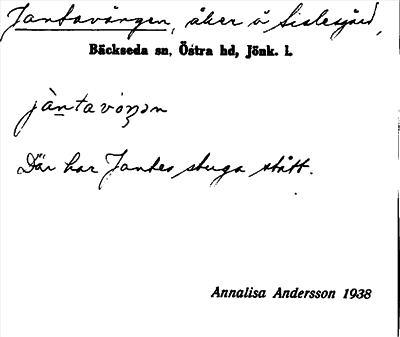 Jantavången, åker å Sislesjärd,
Bäckseda sn, Östra hd, Jönk. l.
jàntavóŋən
Där har Jantes stuga stått.
Annalisa Andersson 1938